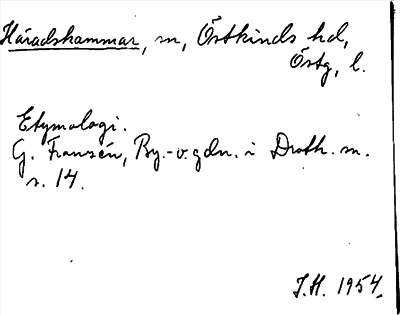 Häradshammar, sn, Östkinds hd,
Östg, l.
Etymologi.
G. Franzén, By.- o. gdn. i Droth. sn.
s. 14.
J.H. 1954.